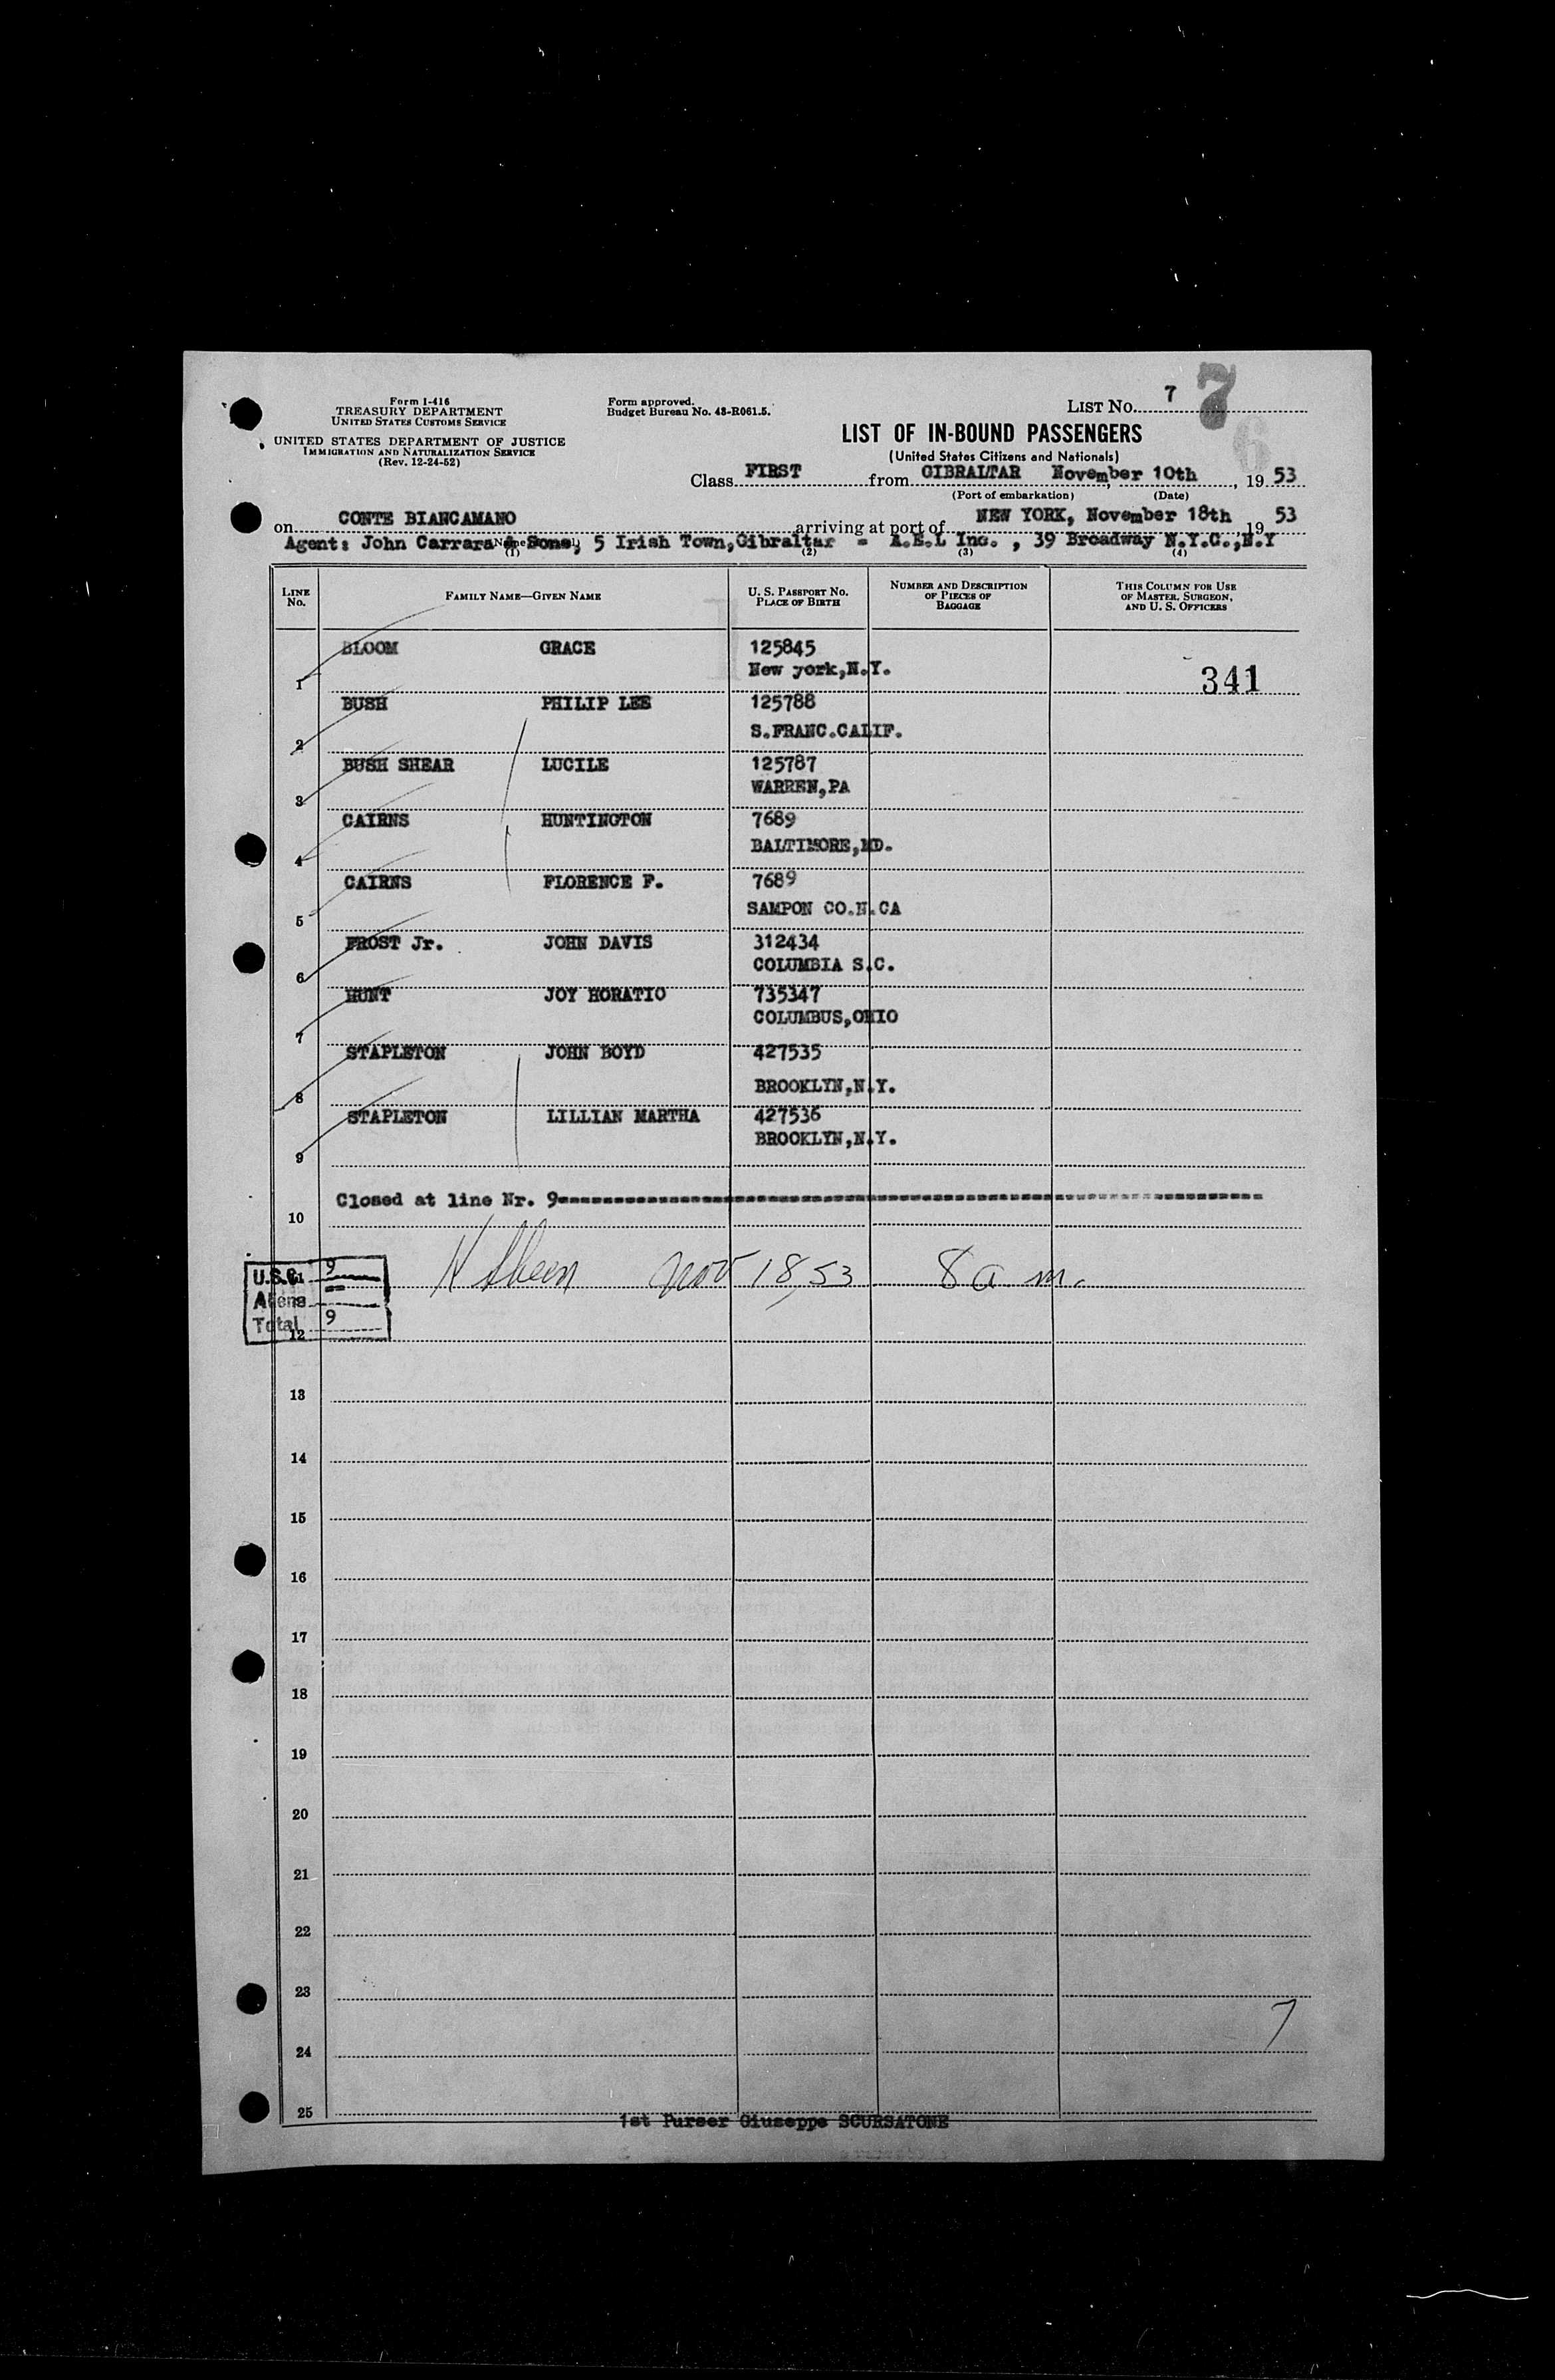 Form I-416
TREASURY DEPARTMENT
UNITED STATES CUSTOMS SERVICE
UNITED STATES DEPARTMENT OF JUSTICE
IMMIGRATION AND NATURALIZATION SERVICE
(Rev. 12-24-52)
Form approved.
Budget Bureau No. 43-R061.5.
LIST No. 7 7
6
LIST OF IN-BOUND PASSENGERS
(United States Citizens and Nationals)
Class FIRST from GIBRALTAR November 10th, 19 53
(Port of embarkation) (Date)
on CONTE BIANCAMANO arriving at port of NEW YORK, November 18th 19 53
Agent: John Carrara & Sons, 5 Irish Town, Gibraltar = A.E.L Inc. , 39 Broadway N.Y.C.,N.Y
(1) (2) (3) (4)
LINE No. FAMILY NAME—GIVEN NAME U. S. PASSPORT No. PLACE OF BIRTH NUMBER AND DESCRIPTION OF PIECES OF BAGGAGE THIS COLUMN FOR USE OF MASTER, SURGEON, AND U. S. OFFICERS
BLOOM GRACE 125845
1 New york,N.Y. 341
BUSH PHILIP LEE 125788
2 S.FRANC.CALIF.
BUSH SHEAR LUCILE 125787
3 WARREN,PA
CAIRNS HUNTINGTON 7689
4 BALTIMORE,MD.
CAIRNS FLORENCE F. 7689
5 SAMPON CO.N.CA
FROST Jr. JOHN DAVIS 312434
6 COLUMBIA S.C.
HUNT JOY HORATIO 735347
7 COLUMBUS,OHIO
STAPLETON JOHN BOYD 427535
8 BROOKLYN,N.Y.
STAPLETON LILLIAN MARTHA 427536
9 BROOKLYN,N.Y.
Closed at line Nr. 9
10
U.S.C. 9
11 Nov 18, 53 8 a m.
Aliens --
Total 9
12
13
14
15
16
17
18
19
20
21
22
23
7
24
25
1st Purser Giuseppe SCURSATONE